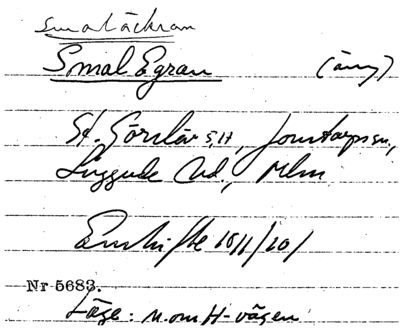 Smalåckran
Smal Egran (äng)
St. Görslöv s,H, Jonstorps sn.,
Luggude hd., Mlm
Enskifte 18 /20/
Nr 5683.
Läge: n. om H-vägen